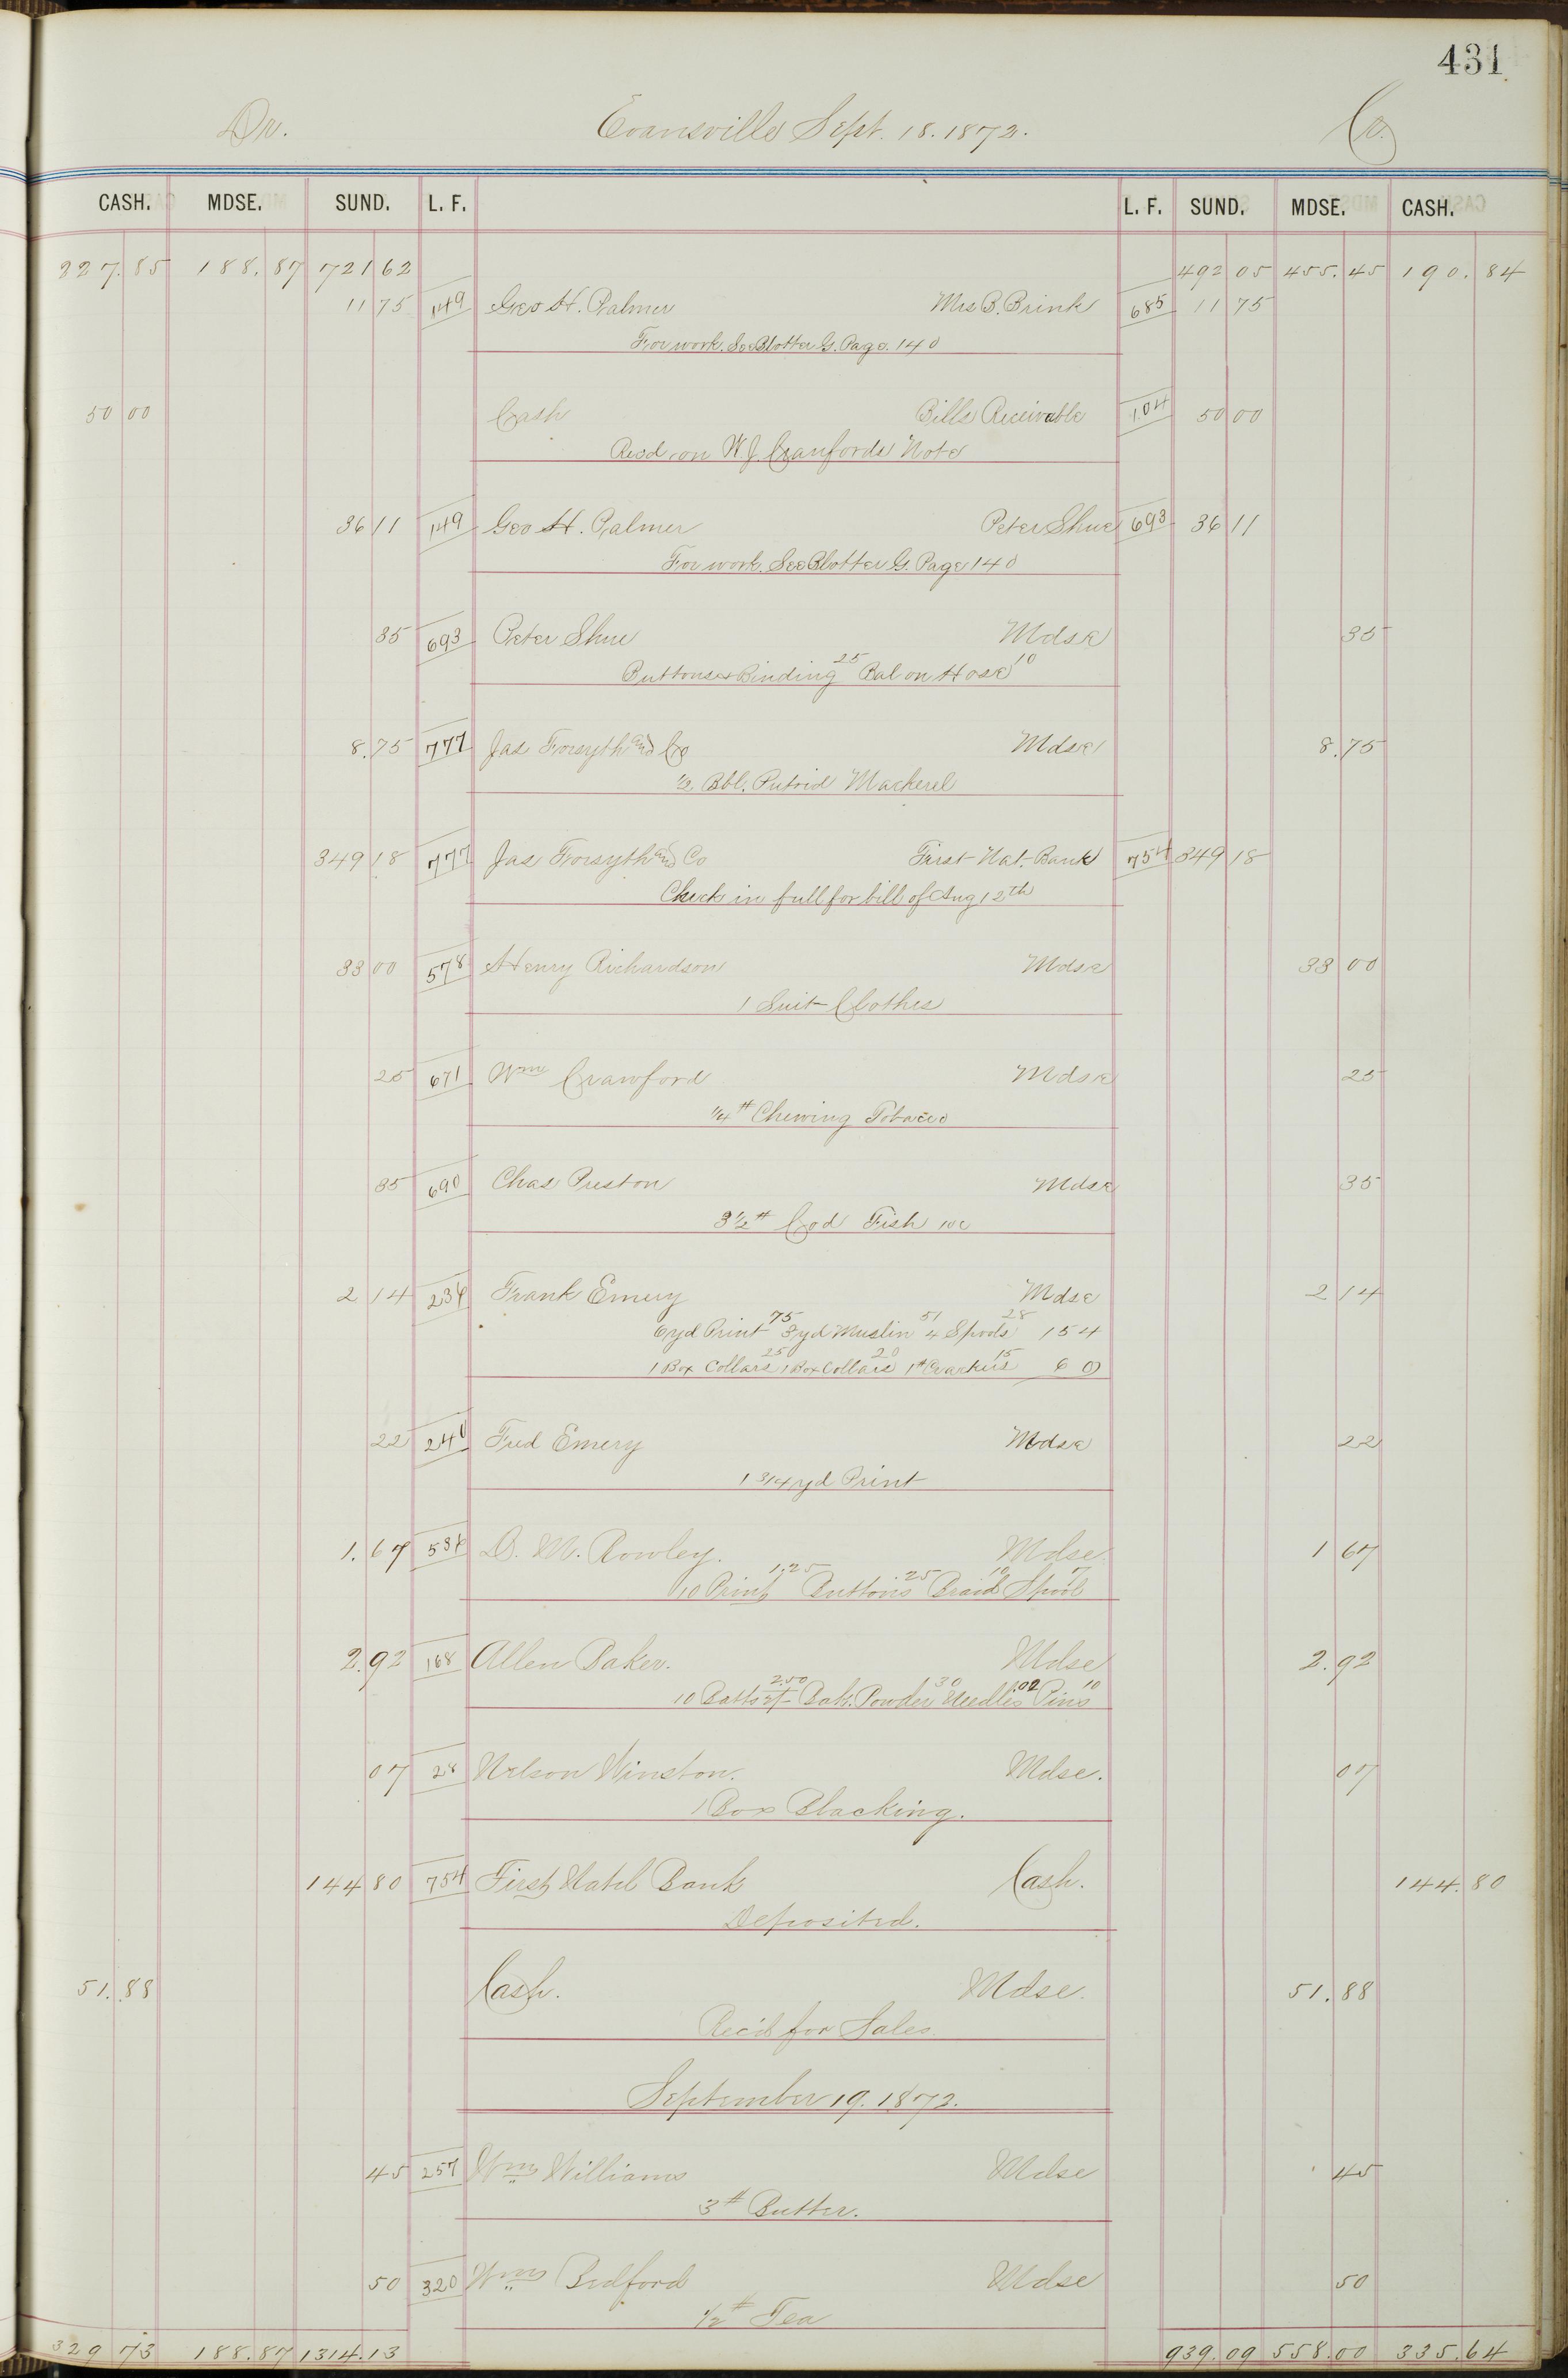 431
Dr. Evansville Sept. 18. 1872. Cr.
CASH. MDSE. SUND. L. F. L. F. SUND. MDSE. CASH.
227.85 188.87 721 62 492 05 455.45 190.84
11 75 149 Geo H. Palmer Mrs B. Brink 685 11 75
For work. See Blotter G. Page. 140
50 00 Cash Bills Receivable 104 50 00
Recd on W J. Cranfords Note
36 11 149 Geo H. Palmer Peter Shue 693 36 11
For work. See Blotter G. Page 140
35 693 Peter Shue Mdse 35
Buttons & Binding 25 Bal on Hose 10
8.75 777 Jas Forsyth and Co Mdse 8.75
1/2 Bbl. Putrid Mackerel
349 18 777 Jas Forsyth and Co First Nat. Bank 754 349 18
Check in full for bill of Aug 12th
33 00 578 Henry Richardson Mdse 33 00
1 Suit Clothes
25 671 Wm Crawford Mdse 25
1/4 # Chewing Tobacco
35 690 Chas Preston Mdse 35
3 1/2 # Cod Fish 10c
2 14 234 Frank Emery Mdse 2 14
6yd Print 75 3yd Muslin 51 4 Spools 28 154
1 Box Collars 25 1 Box Collars 20 1# Crackers 15 60
22 240 Fred Emery Mdse 22
1 3/4 yd Print
1.67 534 D. M. Rowley. Mdse. 1 67
10 Print 1.25 Buttons .25 Braid 10 Spool 7
2.92 168 Allen Baker. Mdse 2.92
10 Batts 2/- 2.50 Bak. Powder 30 Needles .02 Pins 10
07 28 Nelson Winston. Mdse. 07
1 Box Blacking.
144 80 754 First Natl Bank Cash. 144.80
Deposited.
51.88 Cash. Mdse. 51.88
Rec'd for Sales.
September 19. 1872.
45 257 Wm Williams Mdse 45
3 # Butter.
50 320 Wm Bedford Mdse 50
1/2 # Tea
329 73 188.87 1314.13 939.09 558.00 335.64